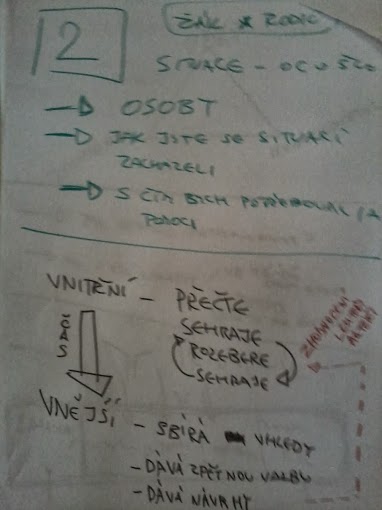 2
ŽÁK * RODIČ
SITUACE - OC O ŠLO
OSOBY
JAK JSTE SE SITUACÍ
ZACHÁZELI
S ČÍM BYCH POTŘEBOVAL/A
POMOCI
VNITŘNÍ - PŘEČTE
SEHRAJE
ROZEBERE
SEHRAJE
ČAS
VNĚJŠÍ - SBÍRÁ VHLEDY
- DÁVÁ ZPĚTNOU VAZBU
- DÁVÁ NÁVRHY